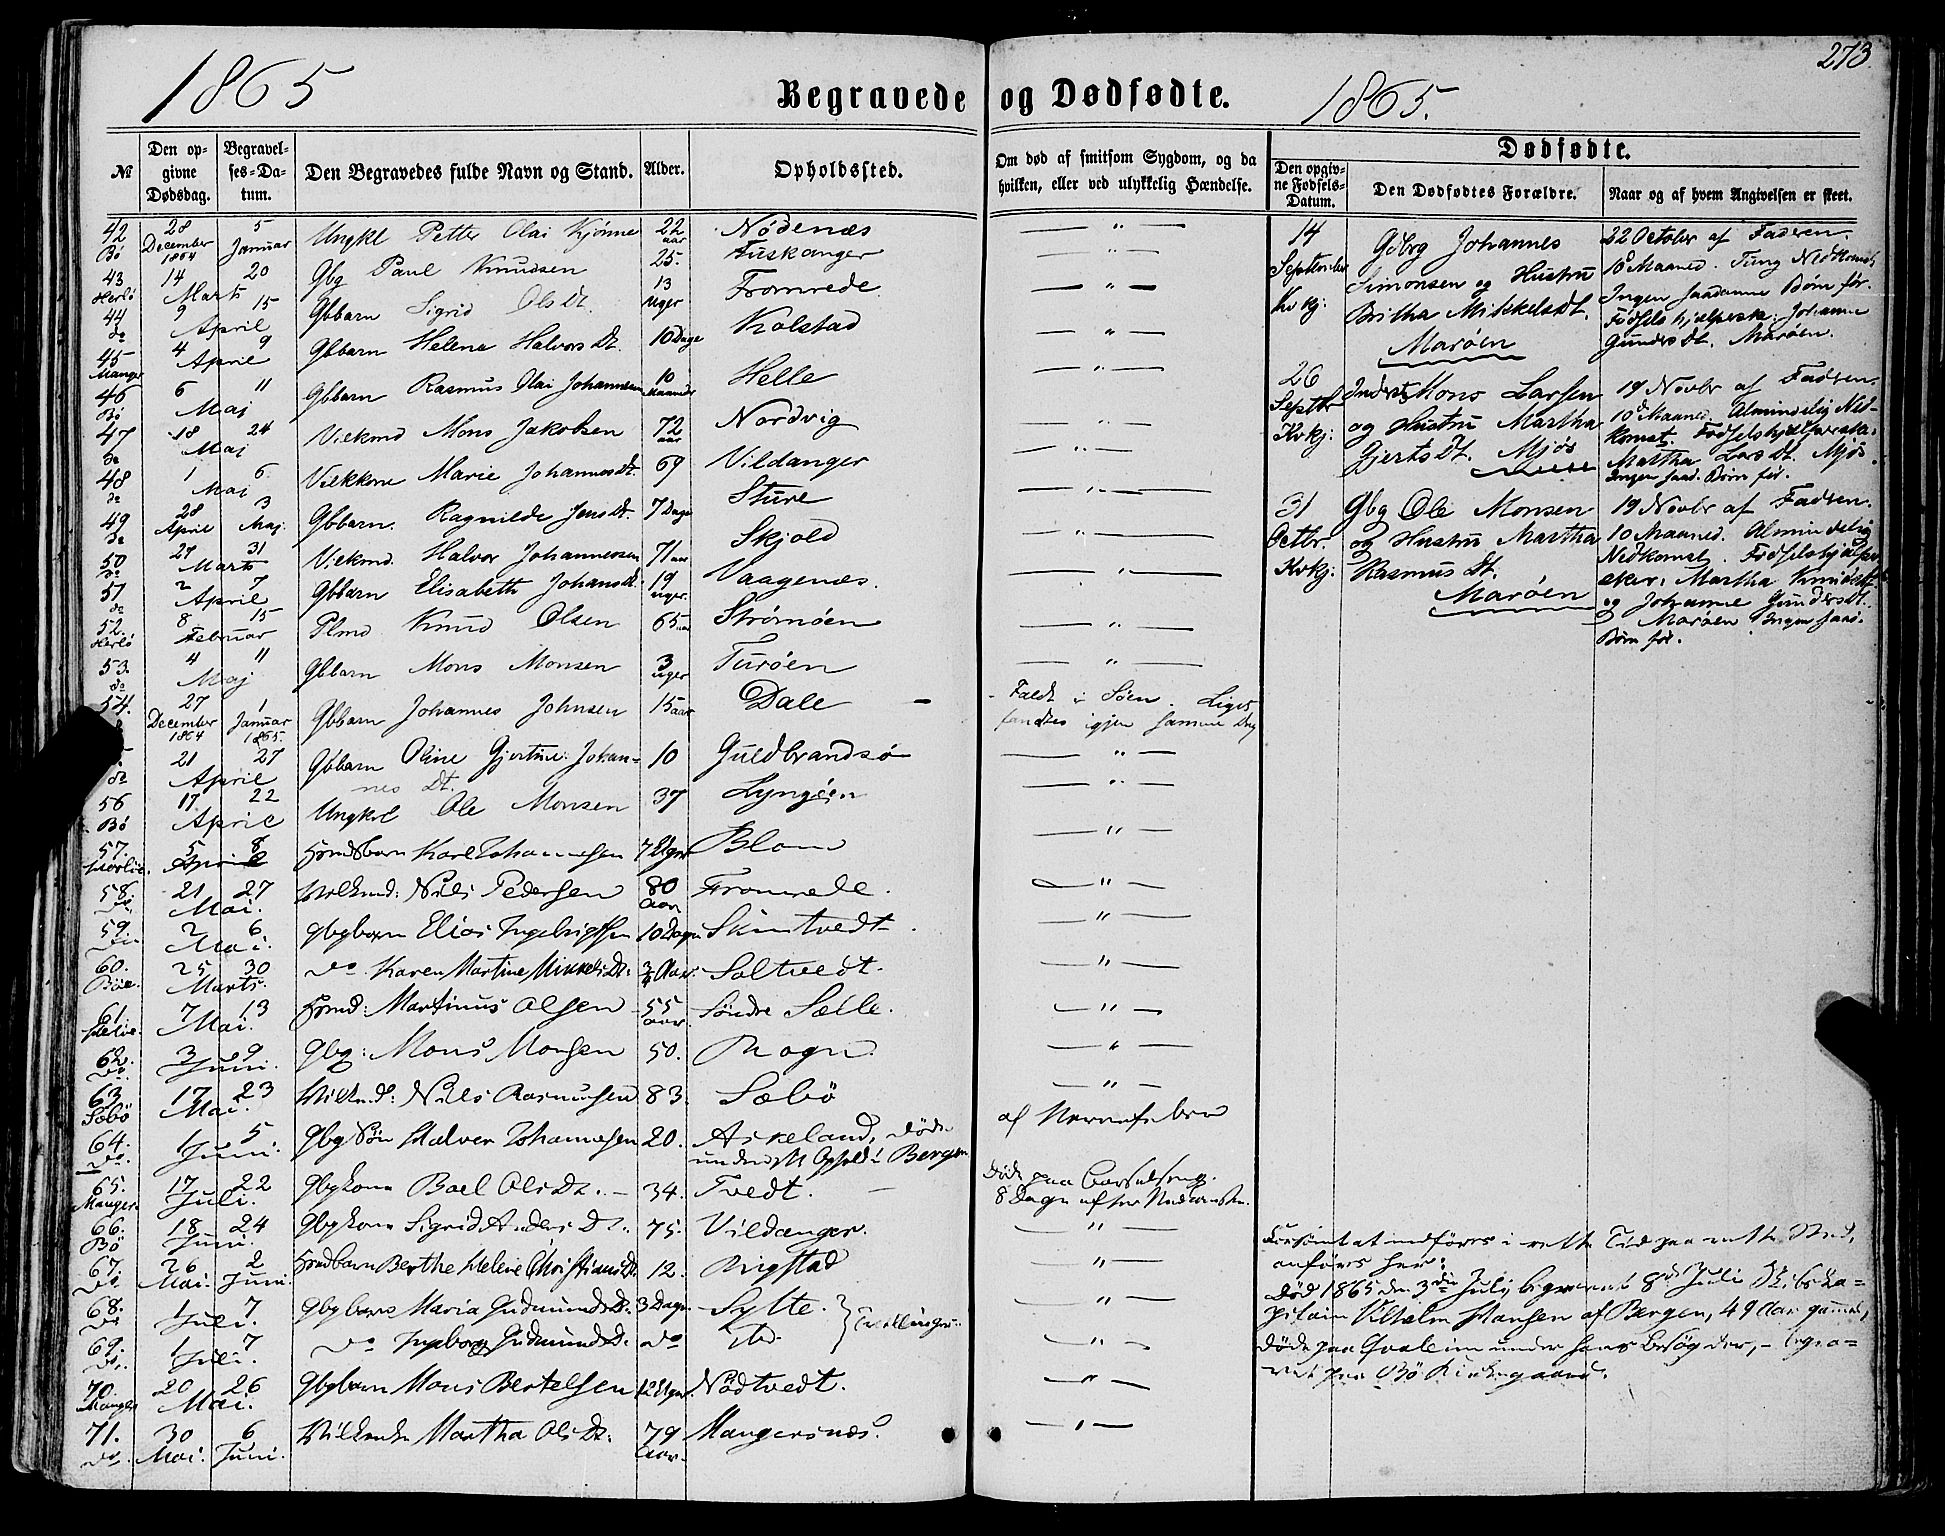 1865
Begravede og Dødfødte.
1865.
273.
№
Den opgivne Dødsdag.
Begravelses-Datum.
Den Begravedes fulde Navn og Stand.
Alder.
Opholdssted.
Om død af smitsom Sygdom, og da hvilken, eller ved ulykkelig Hændelse.
Dødfødte.
Den opgivne Fødsels-Datum.
Den Dødfødtes Forældre.
Naar og af hvem Angivelsen er skeet.
42 Bö 28 December 1864 5 Januar Ungkl Petter Olai Kjönne 22 aar Nödenæs — " —
43 Herlö 14 20 Marts Gbg Paul Knudsen 25. Fuskanger — " —
44 do 9 15 April Gbbarn Sigrid Ols Dt. 13 Uger Fromrede — " —
45 Manger 4 9 April Gbbarn Helene Halvors Dt. 10 Dage Kolstad — " —
46 Bö 6 11 Maj Gbbarn Rasmus Olai Johannesen 10 Maaneder Helle — " —
47 do 18 24 Maj Vilkmd Mons Jakobsen 72 aar Nordvig — " —
48 do 1 6 Maj Vilkkone Marie Johannes Dt. 69 Vildanger — " —
49 do 28 April 3 Maj. Gbbarn Ragnilde Jens Dt. 7 Dage Sture — " —
50 do 27 31 Marts Vilkmd. Halvor Johannessen 71 aar Skjold — " —
51 do 2 7 April Gbbarn Elisabeth Johans Dt. 19 Uger Vaagenæs. — " —
52. Herlö 8 15 Februar Plmd Knud Olsen 65 aar Strömöen — " —
53. do 4 11 Maj Gbbarn Mons Monsen 3 uger Turöen — " —
54. 27 December 1864 1 Januar 1865. Gbbarn Johannes Johnsen 15 aar Dale — Faldt i Söen. Liget
fandtes igjen samme Dag
do 21 27 April Gbbarn Oline Gjertine Johannes Dt. 10 Guldbrandsö — " —
56 Bö 17 22 April Ungkrl Ole Monsen 37 Lyngöen — " —
57. 5 8 April Hmdsbarn Karl Johannesen 7 Uger Blom — " —
58. Do 21 27 Mai. Vilkmd: Nils Pedersen 80 Aar Fromrede. — " —
59. Do 2 6 Mai. Gbgbarn Elias Ingebrigtsen 10 Dage — " —
60. Böe. 25 30 Marts. Do Karen Martine Mikkels Dt: Saltvedt. — " —
61. 7 13 Mai. Hmd: Martinus Olsen 55 aar. Söndre Sælle. — " —
62. Do. 3 9 Juni. Gbg: Mons Monsen 50. Rogn. — " —
63. Sæbö 17 23 Mai. Vilkmd: Nils Rasmussen 83. Sæbö — " —
64. Do. 1 5 Juni. Gbg Sön Halvor Johannesen 20. Askeland, döde
under et Ophold i Bergen af Nervefeber
65. Manger 17 22 Juli. Gbgkone Boel Ols Dt. — 34. Tvedt. — Död paa Barselseng.
8 Dage efter Nedkomsten.
66. Bö 18 24 Juni. Gbgkone Sigrid Anders Dt. 75. Vildanger. — " —
67. Do 26 Mai. 2 Juni. Hmdbarn Berthe Helene Christians Dt 12. Rigstad — " —
68. Do 1 7 Juli. Gbgbarn Maria Gudmunds Dt. 3 Dage Sylte. } Tvillinger. — " —
69. Do. 1 7 Juli. Do Ingeborg Gudmunds Dt. do Ibd. — " —
70. Manger 20 26 Mai. Gbgbarn Mons Bertelsen 12 Uger. Nödtvedt. — " —
71. Do. 30 Mai. 6 Juni. Vilkenke Martha Ols Dt. 79 Aar. Mangersnæs. — " —
14 September Kvkj: Gdbg Johannes
Simonsen og Hustru
Britha Mikkelsdt.
Maröen
22 October af Faderen
10 Maaned. Tung Nedkomst
Ingen saadanne Börn för.
Födselshjelperske: Johanne
Gunders Dt. Maröen.
26 Septbr Kvkj: Inderst Mons Larsen
og Hustru Martha
Gjerts Dt. Mjös
19 Novbr af Faderen.
10de Maaned. Almindelig Ned-
komst. Födselshjelperske:
Martha Lars Dt. Mjös.
Ingen saad. Börn för.
31 Octbr. Kvkj: Gbg Ole Monsen
og Hustru Martha
Rasmus Dt.
Maröen
19 Novbr af Faderen.
10 Maaned. Almindelig
Nedkomst. Födselshjelper
sker: Martha Knudsdt
og Johanne Gundersdt.
Maröen Ingen saad.
Börn för.
Forsömt at indföres i rette Tid paa rette Sted,
anföres her:
Död 1865 den 3die Juli, begravet 8de Juli Skibska-
pitain Vilhelm Hansen af Bergen, 49 Aar gammel,
döde paa Qvalem under hans Besög der, — begra-
vet paa Bö Kirkegaard.